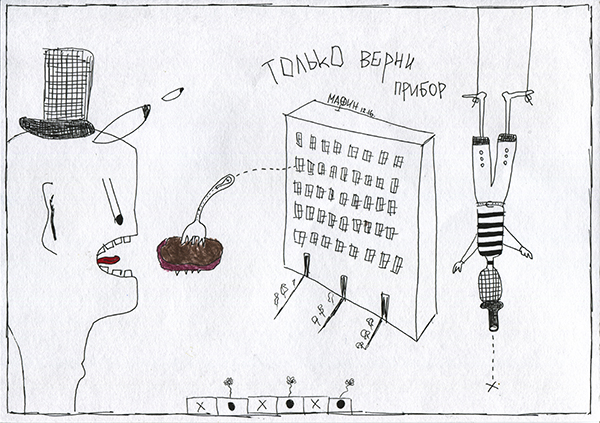 ТОЛЬКО ВЕРНИ
ПРИБОР
МАФИН 12.16
X X X
X